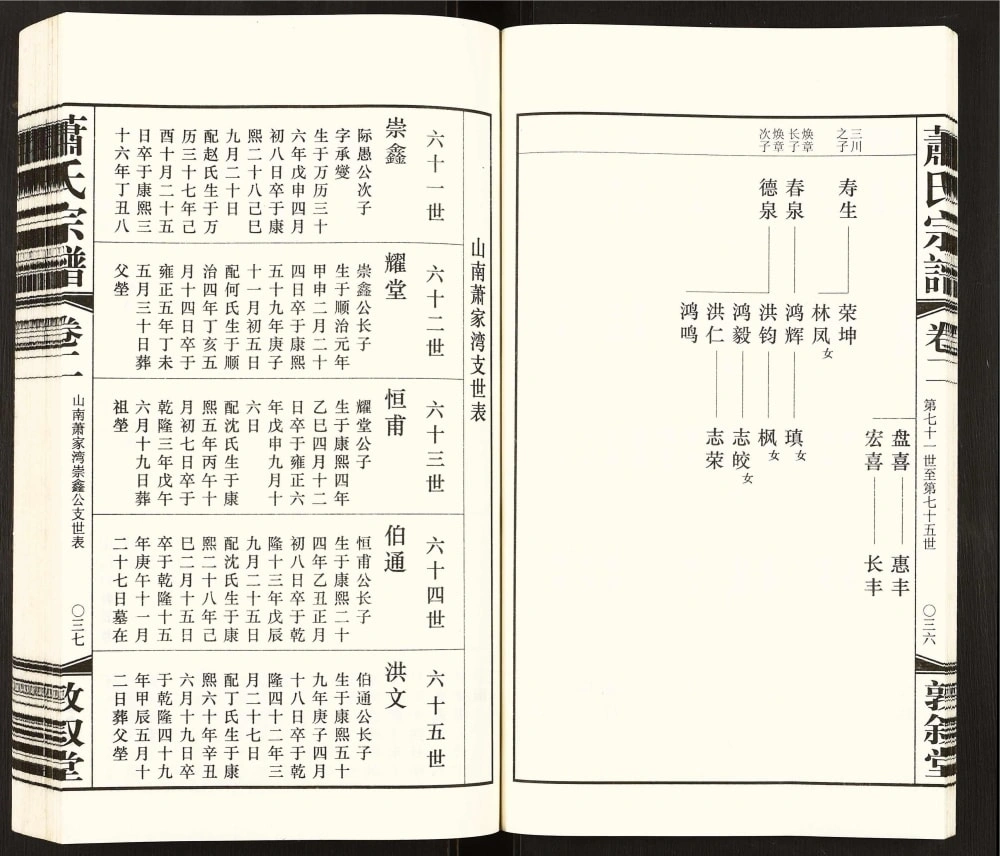 蕭氏宗譜
卷二
第七十一世至第七十五世
〇三六
敦叙堂
盘喜
惠丰
宏喜
长丰
三川之子
寿生
荣坤
林凤女
焕章长子
春泉
鸿辉
瑱女
焕章次子
德泉
洪钧
枫女
鸿毅
志皎女
洪仁
志荣
鸿鸣
山南萧家湾支世表
六十一世
崇鑫
际愚公次子
字承燮
生于万历三十
六年戊申四月
初八日卒于康
熙二十八己巳
九月二十日
配赵氏生于万
历三十七年己
酉十月二十五
日卒于康熙三
十六年丁丑八
六十二世
耀堂
崇鑫公长子
生于顺治元年
甲申二月二十
四日卒于康熙
五十九年庚子
十一月初五日
配何氏生于顺
治四年丁亥五
月十四日卒于
雍正五年丁未
五月三十日葬
父塋
六十三世
恒甫
耀堂公子
生于康熙四年
乙巳四月十二
日卒于雍正六
年戊申九月十
六日
配沈氏生于康
熙五年丙午十
月初七日卒于
乾隆三年戊午
六月十九日葬
祖塋
六十四世
伯通
恒甫公长子
生于康熙二十
四年乙丑正月
初八日卒于乾
隆十三年戊辰
九月二十五日
配沈氏生于康
熙二十八年己
巳二月十五日
卒于乾隆十五
年庚午十一月
二十七日墓在
六十五世
洪文
伯通公长子
生于康熙五十
九年庚子四月
十八日卒于乾
隆四十二年三
月二十七日
配丁氏生于康
熙六十年辛丑
六月十九日卒
于乾隆四十九
年甲辰五月十
二日葬父塋
蕭氏宗譜
卷二
山南萧家湾崇鑫公支世表
〇三七
敦叙堂